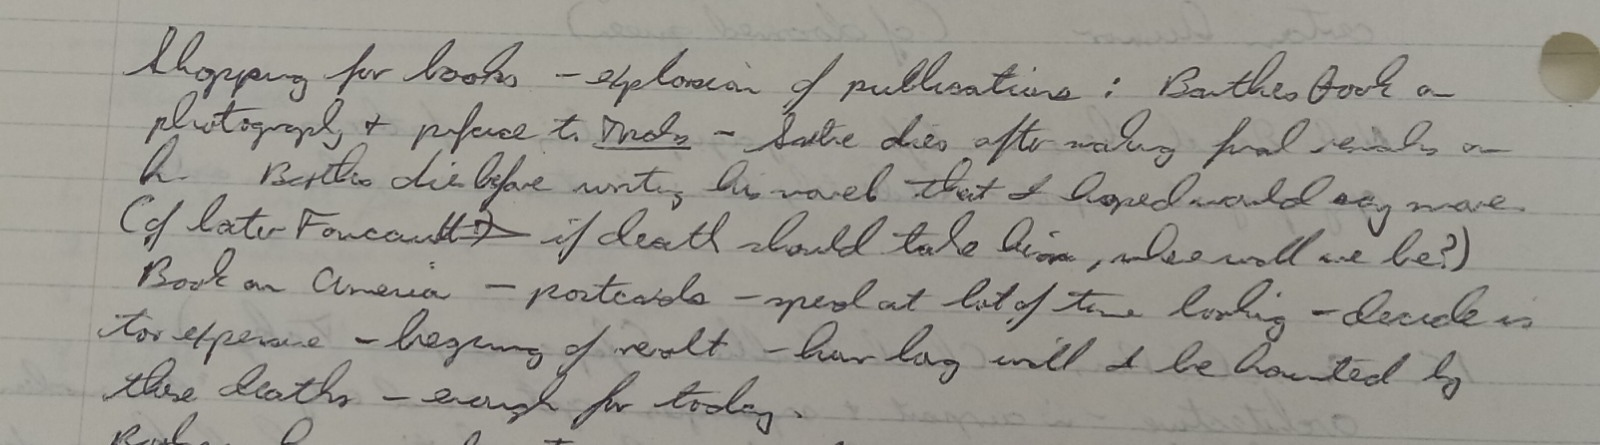 Shopping for books – explosion of publications : Barthes book on
photography + preface to – Sartre dies after making final remarks on
h. Barthes die before writing his novel that I hoped would say more.
(cf later Foucault → if death should take him, where will we be?)
Book on America – postcards – spend a lot of time looking – decide is
too expensive – beginning of revolt – how long will I be haunted by
these deaths – enough for today.